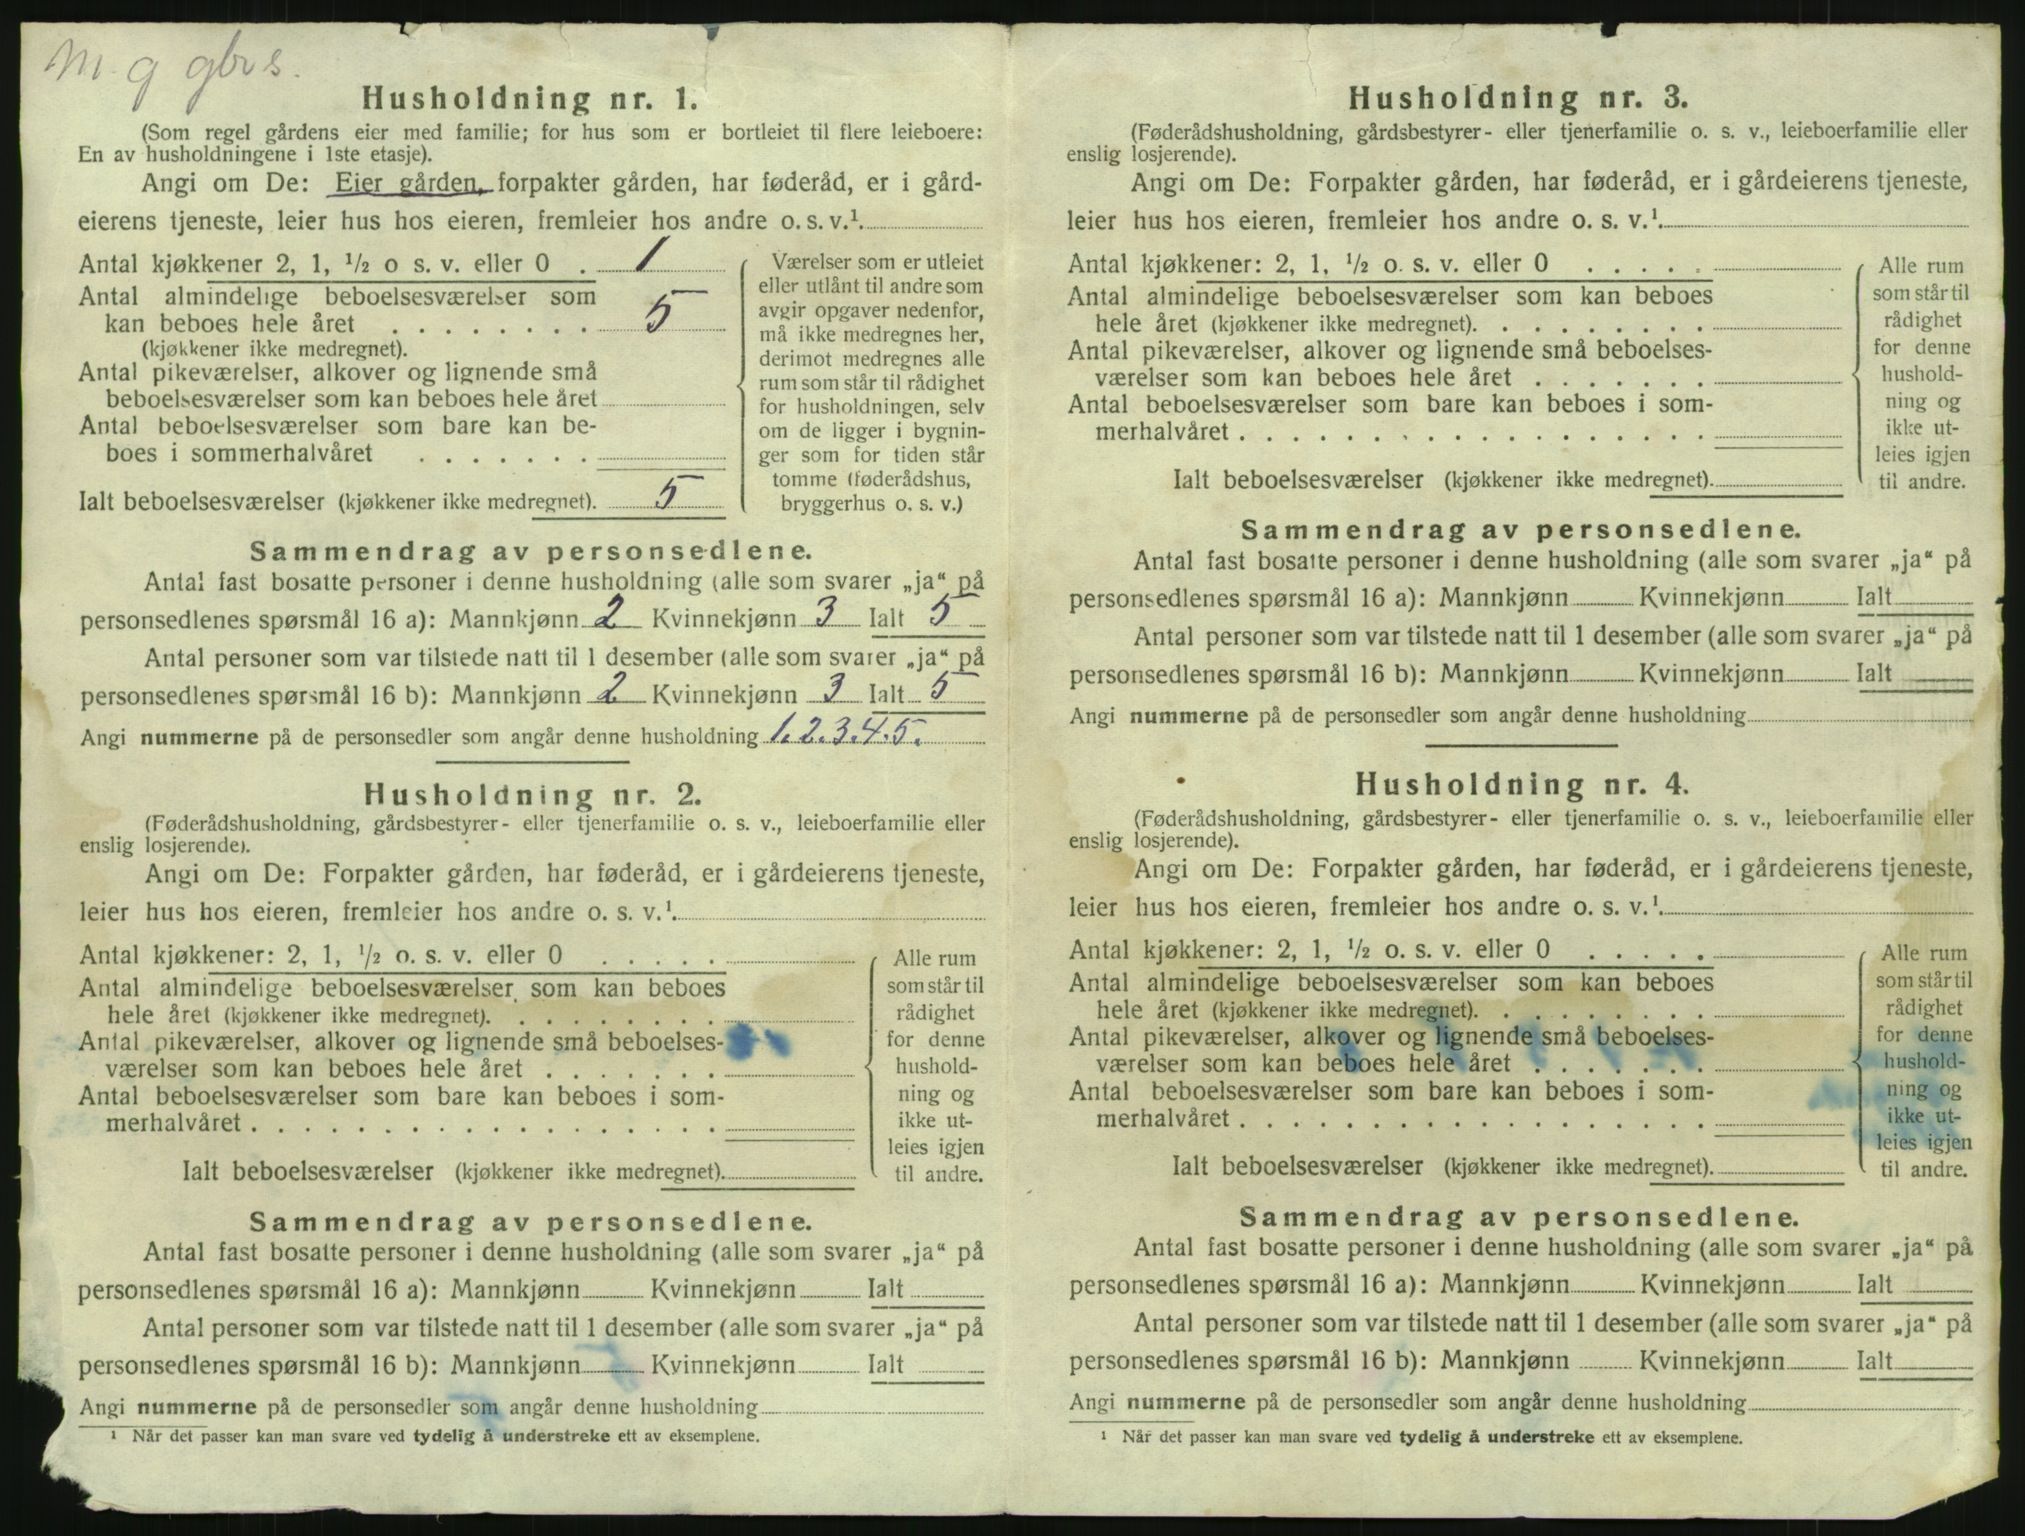 M. g gbr s.
Husholdning nr. 1.
(Som regel gårdens eier med familie; for hus som er bortleiet til flere leieboere:
En av husholdningene i 1ste etasje).
Angi om De: Eier gården, forpakter gården, har føderåd, er i gård-
eierens tjeneste, leier hus hos eieren, fremleier hos andre o. s. v.¹.
Antal kjøkkener 2, 1, ½ o s. v. eller 0 . 1
Antal almindelige beboelsesværelser som
kan beboes hele året . . . . . . . . 5
(kjøkkener ikke medregnet).
Antal pikeværelser, alkover og lignende små
beboelsesværelser som kan beboes hele året
Antal beboelsesværelser som bare kan be-
boes i sommerhalvåret . . . . . . .
Ialt beboelsesværelser (kjøkkener ikke medregnet). 5
Værelser som er utleiet
eller utlånt til andre som
avgir opgaver nedenfor,
må ikke medregnes her,
derimot medregnes alle
rum som står til rådighet
for husholdningen, selv
om de ligger i bygnin-
ger som for tiden står
tomme (føderådshus,
bryggerhus o. s. v.)
Sammendrag av personsedlene.
Antal fast bosatte personer i denne husholdning (alle som svarer „ja“ på
personsedlenes spørsmål 16 a): Mannkjønn 2 Kvinnekjønn 3 Ialt 5
Antal personer som var tilstede natt til 1 desember (alle som svarer „ja“ på
personsedlenes spørsmål 16 b): Mannkjønn 2 Kvinnekjønn 3 Ialt 5
Angi nummerne på de personsedler som angår denne husholdning 1.2.3.4.5.
Husholdning nr. 2.
(Føderådshusholdning, gårdsbestyrer- eller tjenerfamilie o. s. v., leieboerfamilie eller
enslig losjerende).
Angi om De: Forpakter gården, har føderåd, er i gårdeierens tjeneste,
leier hus hos eieren, fremleier hos andre o. s. v.¹.
Antal kjøkkener: 2, 1, ½ o. s. v. eller 0 . . . . .
Antal almindelige beboelsesværelser som kan beboes
hele året (kjøkkener ikke medregnet). . . . . . . . .
Antal pikeværelser, alkover og lignende små beboelses-
værelser som kan beboes hele året . . . . . . .
Antal beboelsesværelser som bare kan beboes i som-
merhalvåret . . . . . . . . . . . . . . . . . .
Ialt beboelsesværelser (kjøkkener ikke medregnet).
Alle rum
som står til
rådighet
for denne
hushold-
ning og
ikke ut-
leies igjen
til andre.
Sammendrag av personsedlene.
Antal fast bosatte personer i denne husholdning (alle som svarer „ja“ på
personsedlenes spørsmål 16 a): Mannkjønn Kvinnekjønn Ialt
Antal personer som var tilstede natt til 1 desember (alle som svarer „ja“ på
personsedlenes spørsmål 16 b): Mannkjønn Kvinnekjønn Ialt
Angi nummerne på de personsedler som angår denne husholdning
¹ Når det passer kan man svare ved tydelig å understreke ett av eksemplene.
Husholdning nr. 3.
(Føderådshusholdning, gårdsbestyrer- eller tjenerfamilie o. s. v., leieboerfamilie eller
enslig losjerende).
Angi om De: Forpakter gården, har føderåd, er i gårdeierens tjeneste,
leier hus hos eieren, fremleier hos andre o. s. v.¹.
Antal kjøkkener: 2, 1, ½ o. s. v. eller 0 . . . . .
Antal almindelige beboelsesværelser som kan beboes
hele året (kjøkkener ikke medregnet). . . . . . . . .
Antal pikeværelser, alkover og lignende små beboelses-
værelser som kan beboes hele året . . . . . . .
Antal beboelsesværelser som bare kan beboes i som-
merhalvåret . . . . . . . . . . . . . . . . . .
Ialt beboelsesværelser (kjøkkener ikke medregnet).
Alle rum
som står til
rådighet
for denne
hushold-
ning og
ikke ut-
leies igjen
til andre.
Sammendrag av personsedlene.
Antal fast bosatte personer i denne husholdning (alle som svarer „ja“ på
personsedlenes spørsmål 16 a): Mannkjønn Kvinnekjønn Ialt
Antal personer som var tilstede natt til 1 desember (alle som svarer „ja“ på
personsedlenes spørsmål 16 b): Mannkjønn Kvinnekjønn Ialt
Angi nummerne på de personsedler som angår denne husholdning
Husholdning nr. 4.
(Føderådshusholdning, gårdsbestyrer- eller tjenerfamilie o. s. v., leieboerfamilie eller
enslig losjerende).
Angi om De: Forpakter gården, har føderåd, er i gårdeierens tjeneste,
leier hus hos eieren, fremleier hos andre o. s. v.¹.
Antal kjøkkener: 2, 1, ½ o. s. v. eller 0 . . . . .
Antal almindelige beboelsesværelser som kan beboes
hele året (kjøkkener ikke medregnet). . . . . . . . .
Antal pikeværelser, alkover og lignende små beboelses-
værelser som kan beboes hele året . . . . . . .
Antal beboelsesværelser som bare kan beboes i som-
merhalvåret . . . . . . . . . . . . . . . . . .
Ialt beboelsesværelser (kjøkkener ikke medregnet).
Alle rum
som står til
rådighet
for denne
hushold-
ning og
ikke ut-
leies igjen
til andre.
Sammendrag av personsedlene.
Antal fast bosatte personer i denne husholdning (alle som svarer „ja“ på
personsedlenes spørsmål 16 a): Mannkjønn Kvinnekjønn Ialt
Antal personer som var tilstede natt til 1 desember (alle som svarer „ja“ på
personsedlenes spørsmål 16 b): Mannkjønn Kvinnekjønn Ialt
Angi nummerne på de personsedler som angår denne husholdning
¹ Når det passer kan man svare ved tydelig å understreke ett av eksemplene.